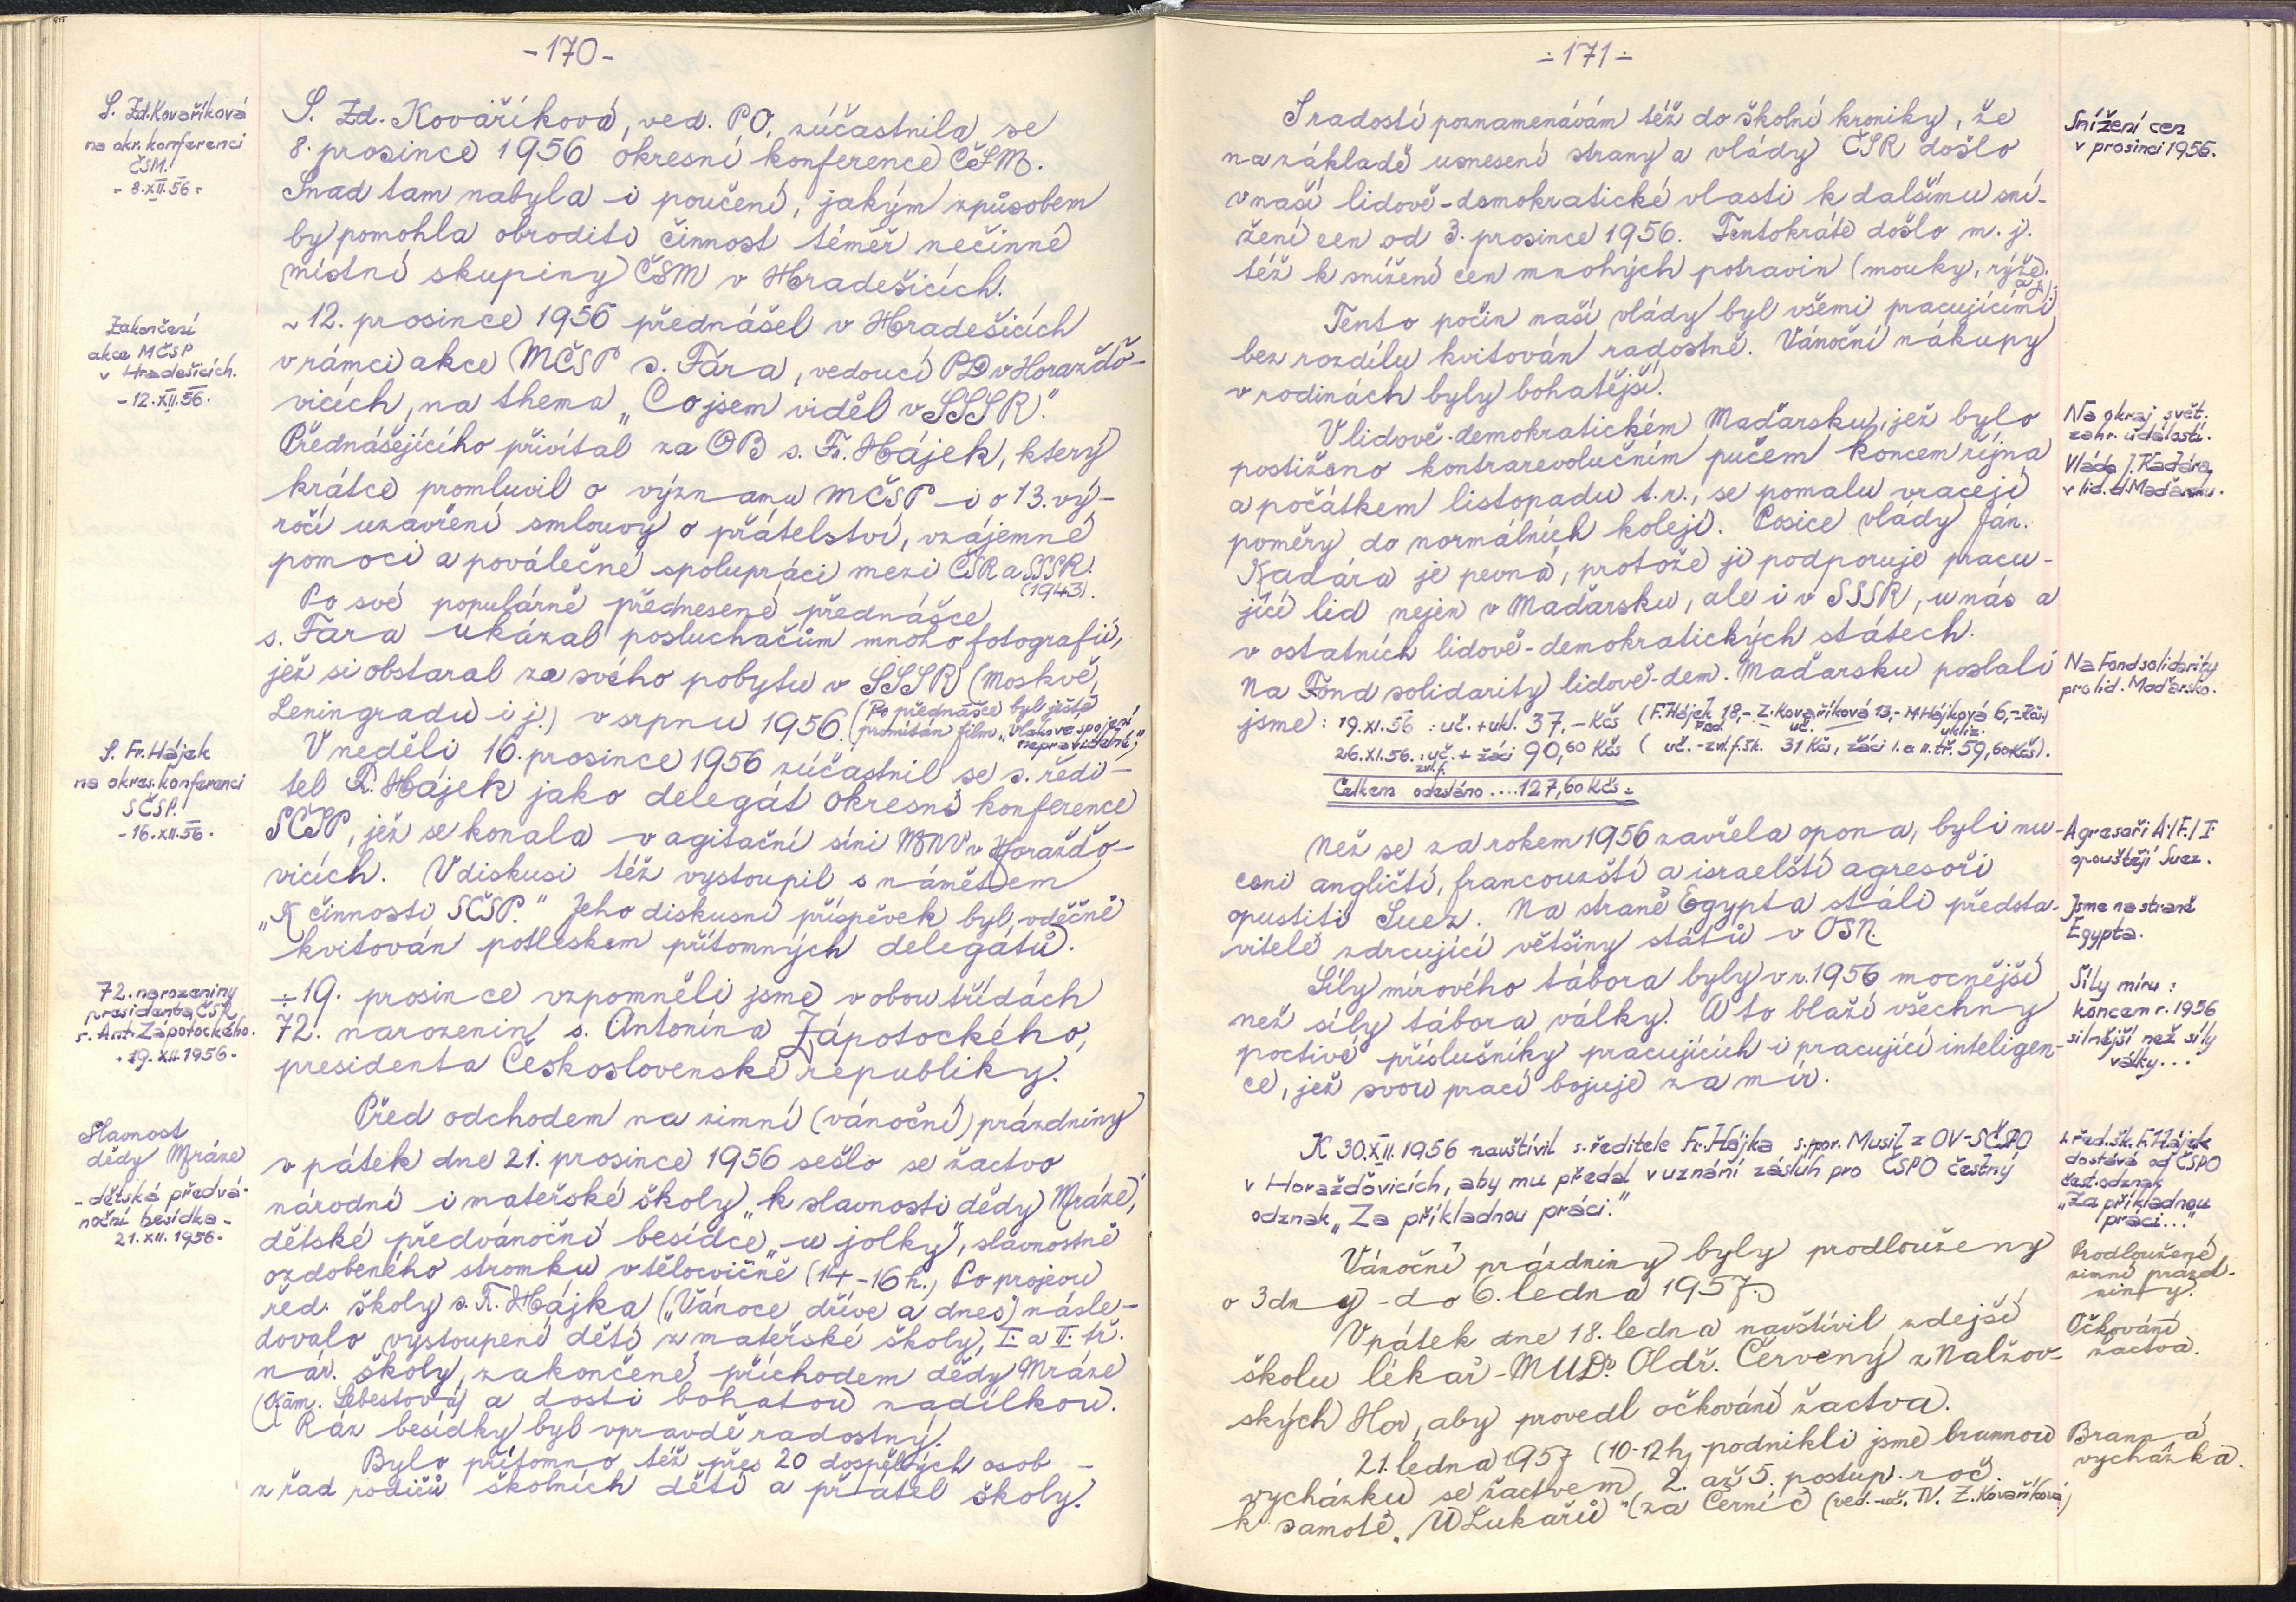 -170-
S. Zd. Kovaříková
na okr. konferenci
ČSM.
- 8.XII.56 -
S. Zd. Kovaříková, ved. PO, zúčastnila se
8. prosince 1956 okresní konference ČSM.
Snad tam nabyla i poučení, jakým způsobem
by pomohla obroditi činnost téměř nečinné
místní skupiny ČSM v Hradešicích.
Zakončení
akce MČSP
v Hradešicích.
- 12.XII.56.
- 12. prosince 1956 přednášel v Hradešicích
v rámci akce MČSP s. Fára, vedoucí PD v Horažďo-
vicích, na thema „Co jsem viděl v SSSR."
Přednášejícího přivítal za OB s. Fr. Hájek, který
krátce promluvil o významu MČSP i o 13. vý-
ročí uzavření smlouvy o přátelství, vzájemné
pomoci a poválečné spolupráci mezi ČSR a SSSR.
(1943).
Po své populárně přednesené přednášce
s. Fára ukázal posluchačům mnoho fotografií,
jež si obstaral za svého pobytu v SSSR (Moskvě,
Leningradu i j.) v srpnu 1956. (Po přednášce byl ještě
promítán film „Vlakové spojení
nepravidelné")
S. Fr. Hájek
na okres. konferenci
SČSP.
- 16.XII.56.
V neděli 16. prosince 1956 zúčastnil se s. ředi-
tel Fr. Hájek jako delegát okresní konference
SČSP, jež se konala v agitační síni MNV v Horažďo-
vicích. V diskusi též vystoupil s námětem
„K činnosti SČSP." Jeho diskusní příspěvek byl vděčně
kvitován potleskem přítomných delegátů.
72. narozeniny
presidenta ČSR
s. Ant. Zápotockého.
- 19.XII.1956-
÷ 19. prosince vzpomněli jsme v obou třídách
72. narozenin s. Antonína Zápotockého,
presidenta Československé republiky.
Slavnost
dědy Mráze
- dětská předvá-
noční besídka -
21.XII.1956-
Před odchodem na zimní (vánoční) prázdniny
v pátek dne 21. prosince 1956 sešlo se žactvo
národní i mateřské školy „k slavnosti dědy Mráze",
dětské předvánoční besídce „u jolky", slavnostně
ozdobeného stromku v tělocvičně (14-16 h.) Po projevu
řed. školy s. Fr. Hájka („Vánoce dříve a dnes") násle-
dovalo vystoupení dětí z mateřské školy, I. a II. tř.
nár. školy, zakončené příchodem dědy Mráze
Šebestová) a dosti bohatou nadílkou.
Ráz besídky byl vpravdě radostný.
Bylo přítomno též přes 20 dospělých osob -
z řad rodičů školních dětí a přátel školy.
÷171÷
S radostí poznamenávám též do školní kroniky, že
na základě usnesení strany a vlády ČSR došlo
v naší lidově-demokratické vlasti k dalšímu sní-
žení cen od 3. prosince 1956. Tentokráte došlo m. j.
též k snížení cen mnohých potravin (mouky, rýže
a j.).
Snížení cen
v prosinci 1956.
Tento počin naší vlády byl všemi pracujícími
bez rozdílu kvitován radostně. Vánoční nákupy
v rodinách byly bohatější.
V lidově-demokratickém Maďarsku, jež bylo
postiženo kontrarevolučním pučem koncem října
a počátkem listopadu t.r., se pomalu vracejí
poměry do normálních kolejí. Posice vlády Ján.
Kadára je pevná, protože ji podporuje pracu-
jící lid nejen v Maďarsku, ale i v SSSR, u nás a
v ostatních lidově-demokratických státech.
Na okraj svět.
zahr. událostí.
Vláda J. Kadára
v lid. d. Maďarsku.
Na Fond solidarity lidově-dem. Maďarsku poslali
jsme: 19.XI.56 : uč. + ukl. 37,- Kčs (F. Hájek 18,- Z. Kovaříková 13,- M. Hájková 6,- Kčs)
řed. uč. ukliz.
26.XI.56. : uč. + žáci 90,60 Kčs ( uč. - zvl. f. šk. 31 Kčs, žáci I. a II. tř. 59,60 Kčs).
zvl. f.
Celkem odesláno .... 127,60 Kčs =
Na Fond solidarity
pro lid. Maďarsko.
Než se za rokem 1956 zavřela opona, byli nu-
ceni angličtí, francouzští a israelští agresoři
opustiti Suez. Na straně Egypta stáli předsta-
vitelé zdrcující většiny států v OSN.
Agresoři A/F/I
opouštějí Suez.
Jsme na straně
Egypta.
Síly mírového tábora byly v r. 1956 mocnější
než síly tábora války. A to blaží všechny
poctivé příslušníky pracujících i pracující inteligen-
ce, jež svou prací bojuje za mír.
Síly míru :
koncem r. 1956
silnější než síly
války...
K 30.XII.1956 navštívil s. ředitele Fr. Hájka s. por. Musil z OV-SČPO
v Horažďovicích, aby mu předal v uznání zásluh pro ČSPO čestný
odznak „Za příkladnou práci."
s. řed. šk. F. Hájek
dostává od ČSPO
čest. odznak
„Za příkladnou
práci..."
Vánoční prázdniny byly prodlouženy
o 3 dny - do 6. ledna 1957.
Prodloužené
zimní prázd-
niny.
V pátek dne 18. ledna navštívil zdejší
školu lékař - MUDr. Oldř. Červený z Nalžov-
ských Hor, aby provedl očkování žactva.
Očkování
žactva.
21. ledna 1957 (10-12 h) podnikli jsme brannou
vycházku se žactvem 2. až 5. postup. roč.
k samotě „U Lukařů" (za Černíč (ved. uč. TV. Z. Kovaříková)
Branná
vycházka.